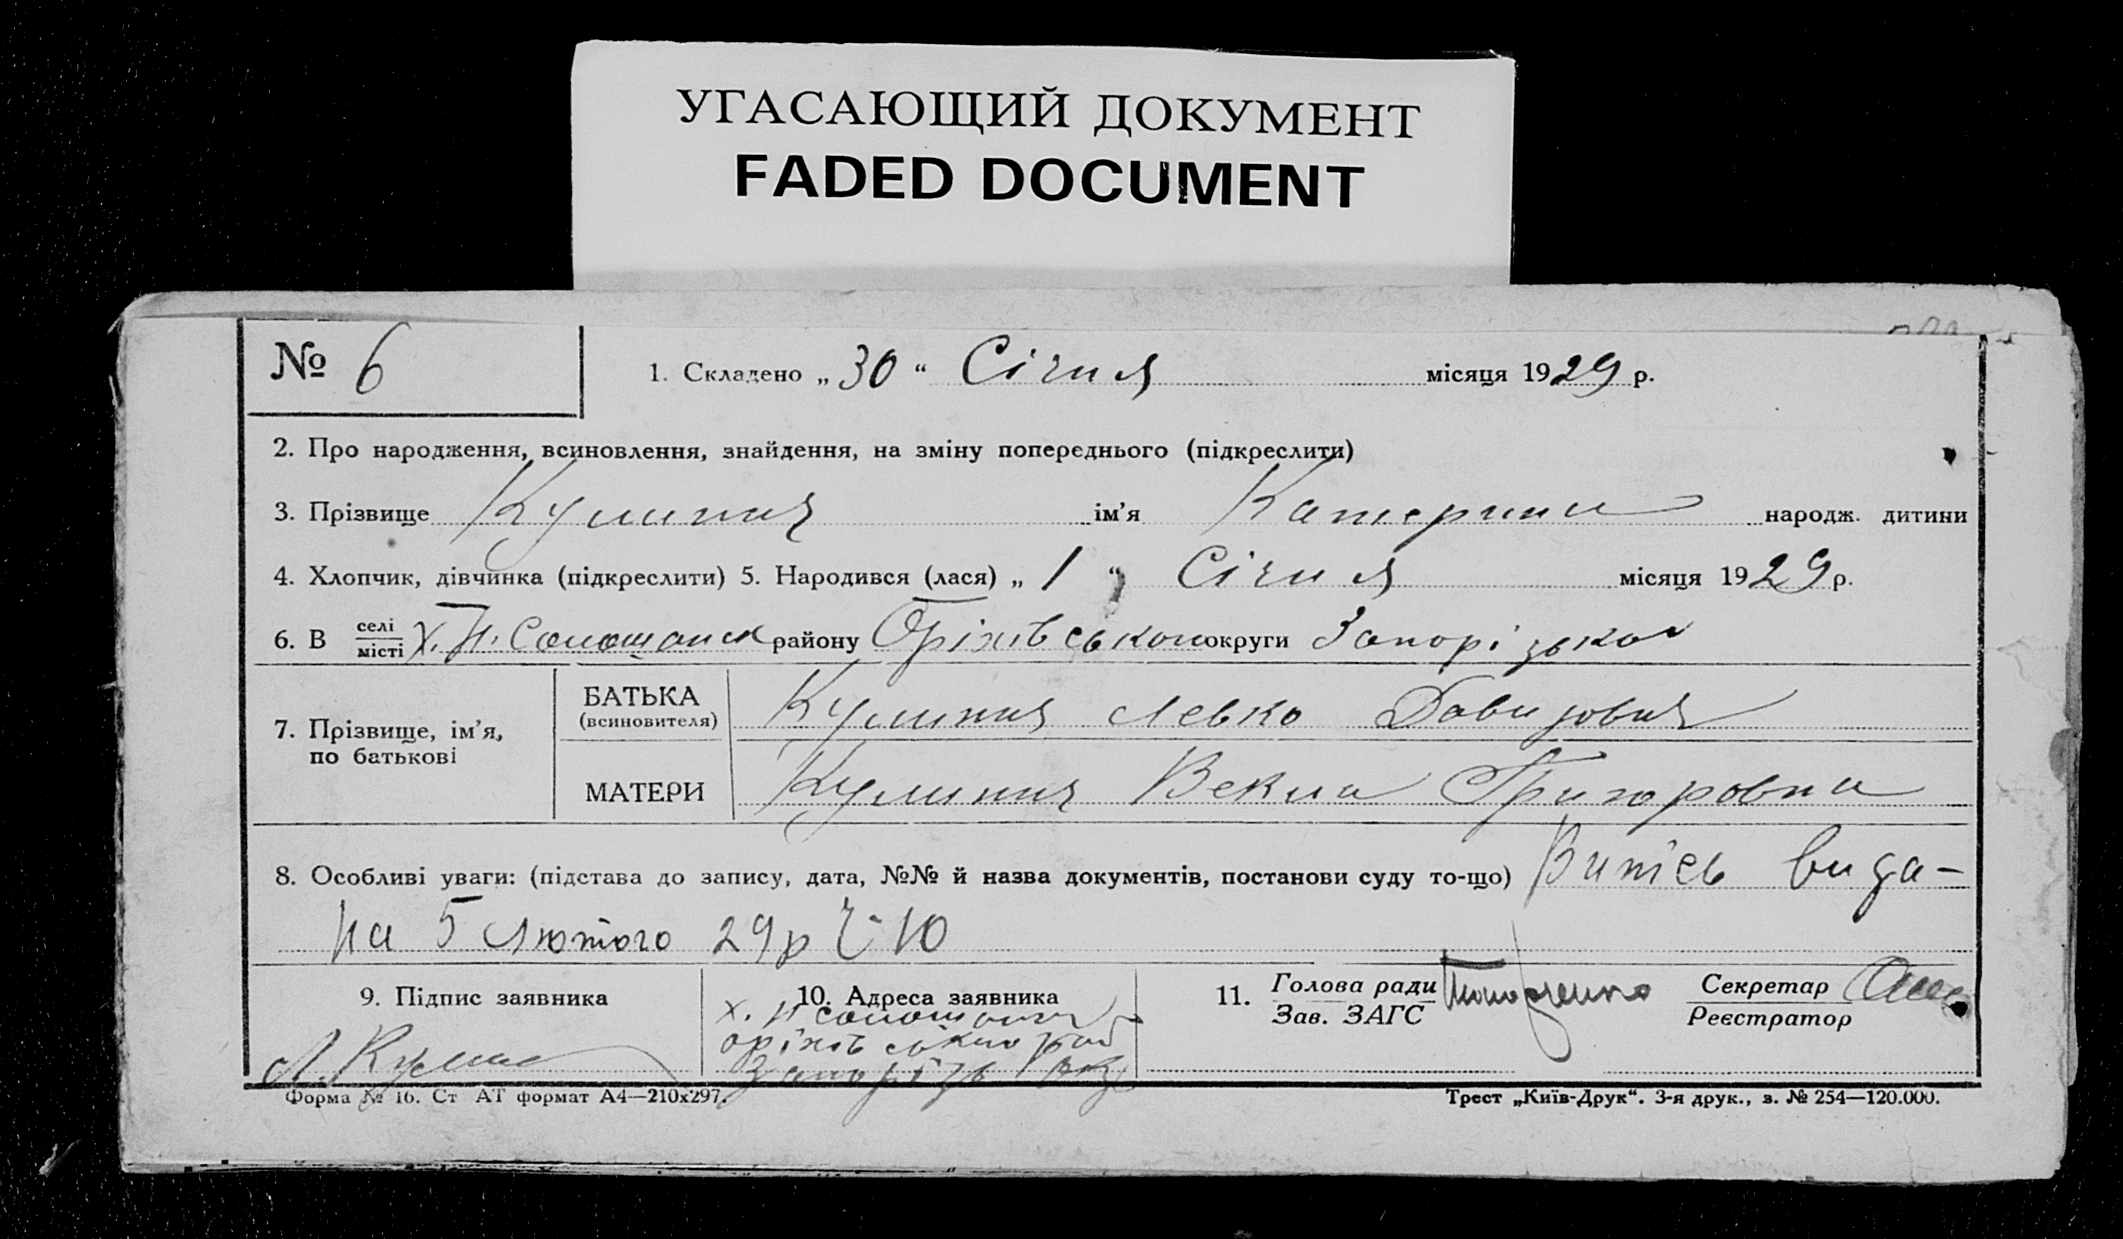 УГАСАЮЩИЙ ДОКУМЕНТ
FADED DOCUMENT
№ 6
1. Складено „ 30 “ Січня місяця 1929 р.
2. Про народження, всиновлення, знайдення, на зміну попереднього (підкреслити)
3. Прізвище Кулинич ім’я Катерина народж. дитини
4. Хлопчик, дівчинка (підкреслити) 5. Народився (лася) „ 1 “ Січня місяця 1929 р.
6. В селі місті х. району Оріхівського округи Запорізько
7. Прізвище, ім’я, по батькові
БАТЬКА (всиновителя) Кулинич Левко Давидович
МАТЕРИ Кулинич Векла Григоровна
8. Особливі уваги: (підстава до запису, дата, №№ й назва документів, постанови суду то-що) Витісь вида-
на 5 Лютого 29 р Ч. 10
9. Підпис заявника
Л. Кулин
10. Адреса заявника
х. Н
11. Голова ради
Зав. ЗАГС
Секретар
Реєстратор
Форма № 16. Ст АТ формат А4—210х297.
Трест „Київ-Друк“. 3-я друк., з. № 254—120.000.